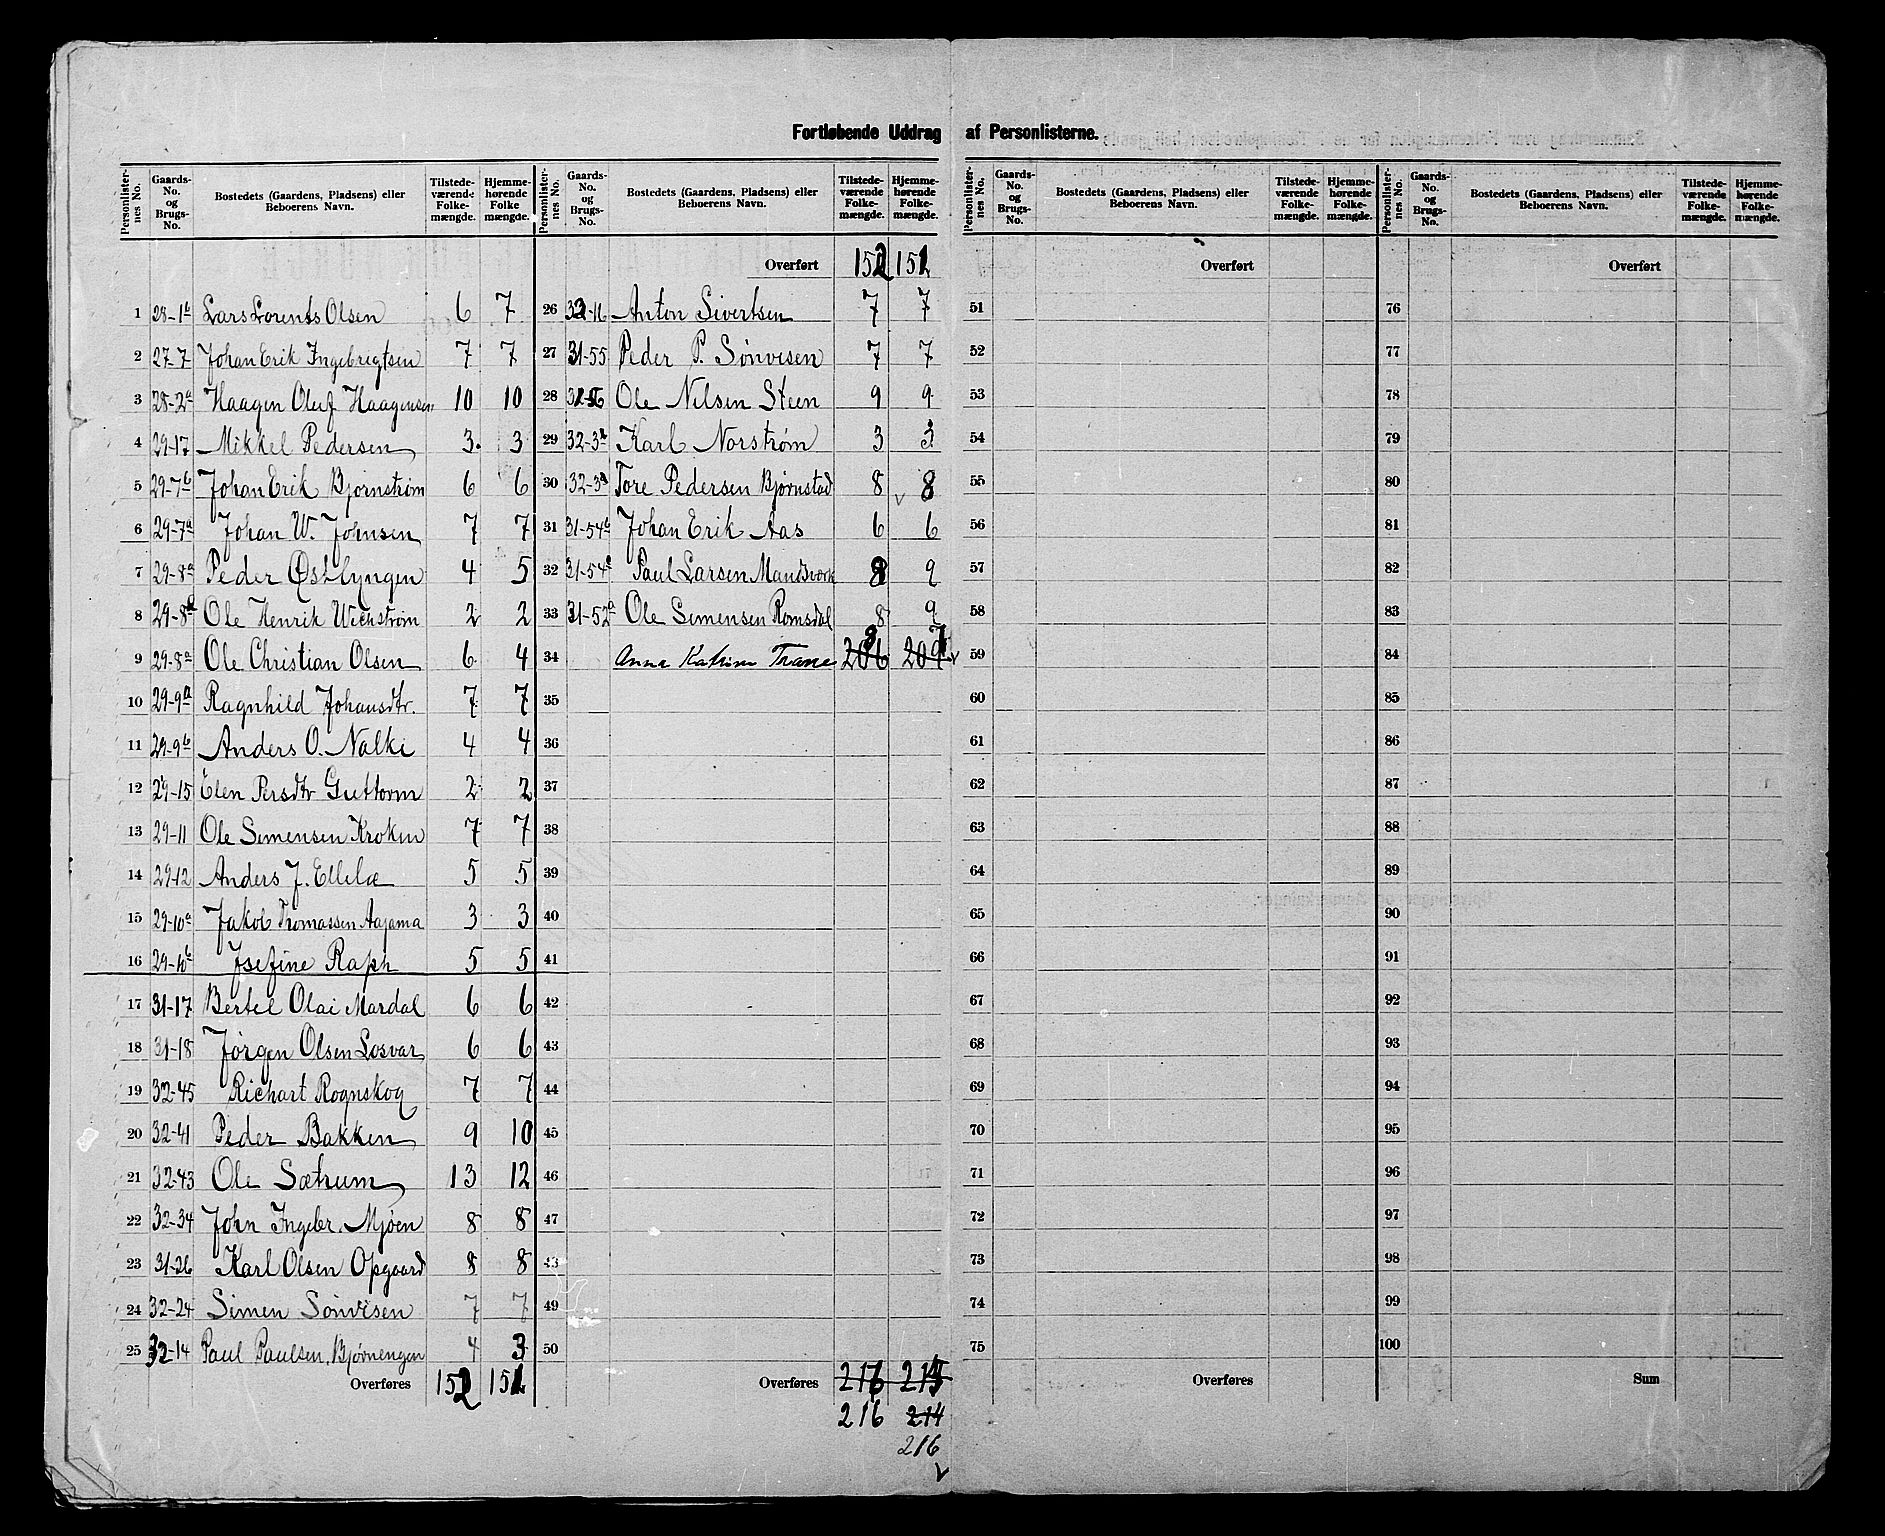 Fortløbende Uddrag af Personlisterne.
Personlister-nes No. Gaards-No. og Brugs-No. Bostedets (Gaardens, Pladsens) eller Beboerens Navn. Tilstede-værende Folke-mængde. Hjemme-hørende Folke mængde.
1 28-1b Lars Lorents Olsen 6 7
2 27-7 Johan Erik Ingebregtsen 7 7
3 28-2a Haagen Oluf Haagensen 10 10
4 29-17 Mikkel Pedersen 3. 3
5 29-7b Johan Erik Bjornstrøm 6 6
6 29-7a Johan W. Johnsen 7 7
7 29-8a Peder Østlyngen 4 5
8 29-8a Ole Henrik Wichstrøm 2 2
9 29-8a Ole Christian Olsen 6 4
10 29-9a Ragnhild Johansdtr. 7 7
11 29-9b Anders O. Nalki 4 4
12 29-15 Elen Persdtr Guttorm 2 2
13 29-11 Ole Simensen Kroken 7 7
14 29-12 Anders J. Ellila 5 5
15 29-10a Jakob Thomassen Aajama 3 3
16 29-10b Jsefine Raph 5 5
17 31-17 Bertel Olai Mardal 6 6
18 31-18 Jørgen Olsen Losvar 6 6
19 32-45 Richart Rognskog 7 7
20 32-41 Peder Bakken 9 10
21 32-43 Ole Sætrum 13 12
22 32-34 John Ingebr. Mjøen 8 8
23 31-26 Karl Olsen Opgaard 8 8
24 32-24 Simen Sönvisen 7 7
25 32-14 Paul Paulsen Bjørnengen 4 3
Overføres 152 151
Personlister-nes No. Gaards-No. og Brugs-No. Bostedets (Gaardens, Pladsens) eller Beboerens Navn. Tilstede-værende Folke-mængde. Hjemme-hørende Folke-mængde.
Overført 152 151
26 32-16 Anton Sivertsen 7 7
27 31-55 Peder P. Sønvisen 7 7
28 Ole Nilsen Steen 9 9
29 32-3a Karl Norstrøm 3 3
30 32-3a Tore Pedersen Bjørnstad 8 8
31 31-54b Johan Erik Aas 6 6
32 31-54c Paul Larsen Mandsverk 8 9
33 31-52a Ole Simensen Romsdal 8 9
34 Anna Katrina Trane 8 7
206 209
35
36
37
38
39
40
41
42
43
44
45
46
47
48
49
50
Overføres 216 214
216 214
216
Personlister-nes No. Gaards-No. og Brugs-No. Bostedets (Gaardens, Pladsens) eller Beboerens Navn. Tilstede-værende Folke-mængde. Hjemme-hørende Folke-mængde.
Overført
51
52
53
54
55
56
57
58
59
60
61
62
63
64
65
66
67
68
69
70
71
72
73
74
75
Overføres
Personlister-nes No. Gaards-No. og Brugs-No. Bostedets (Gaardens, Pladsens) eller Beboerens Navn. Tilstede-værende Folke-mængde. Hjemme-hørende Folke-mængde.
Overført
76
77
78
79
80
81
82
83
84
85
86
87
88
89
90
91
92
93
94
95
96
97
98
99
100
Sum